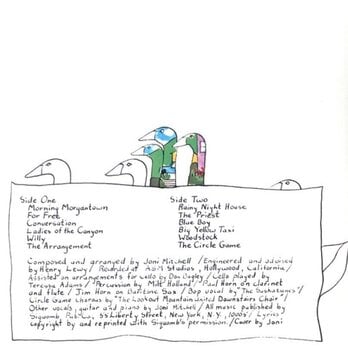 Side One
Morning Morgantown
For Free
Conversation
Ladies of the Canyon
Willy
The Arrangement
Side Two
Rainy Night House
The Priest
Blue Boy
Big Yellow Taxi
Woodstock
The Circle Game
Composed and arranged by Joni Mitchell / Engineered and advised
by Henry Lewy / Recorded at A&M Studios, Hollywood, California /
Assisted on arrangements for cello by Don Bagley / Cello played by
Teressa Adams / Percussion by Milt Holland / Paul Horn on clarinet
and flute / Jim Horn on Baritone Sax / Bop vocal by "The Saskatunes" /
Circle Game chorus by "The Lookout Mountain United Downstairs Choir" /
Other vocals, guitar and piano by Joni Mitchell / All music published by
Siquomb Pub. Co., 55 Liberty Street, New York, N.Y. 10005 / Lyrics
copyright by and reprinted with Siquomb's permission. / Cover by Joni